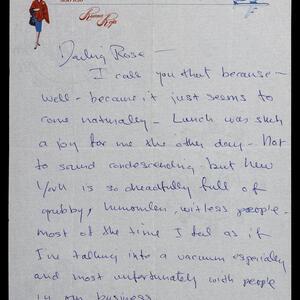 Darling Rose —
I call you that because —
well - because it just seems to
come naturally - Lunch was such
a joy for me the other day - Not
to sound condescending but New
York is so dreadfully full of
grubby, humorless, witless people -
most of the time I feel as if
I'm talking into a vacuum especially
and most unfortunately with people
in our business